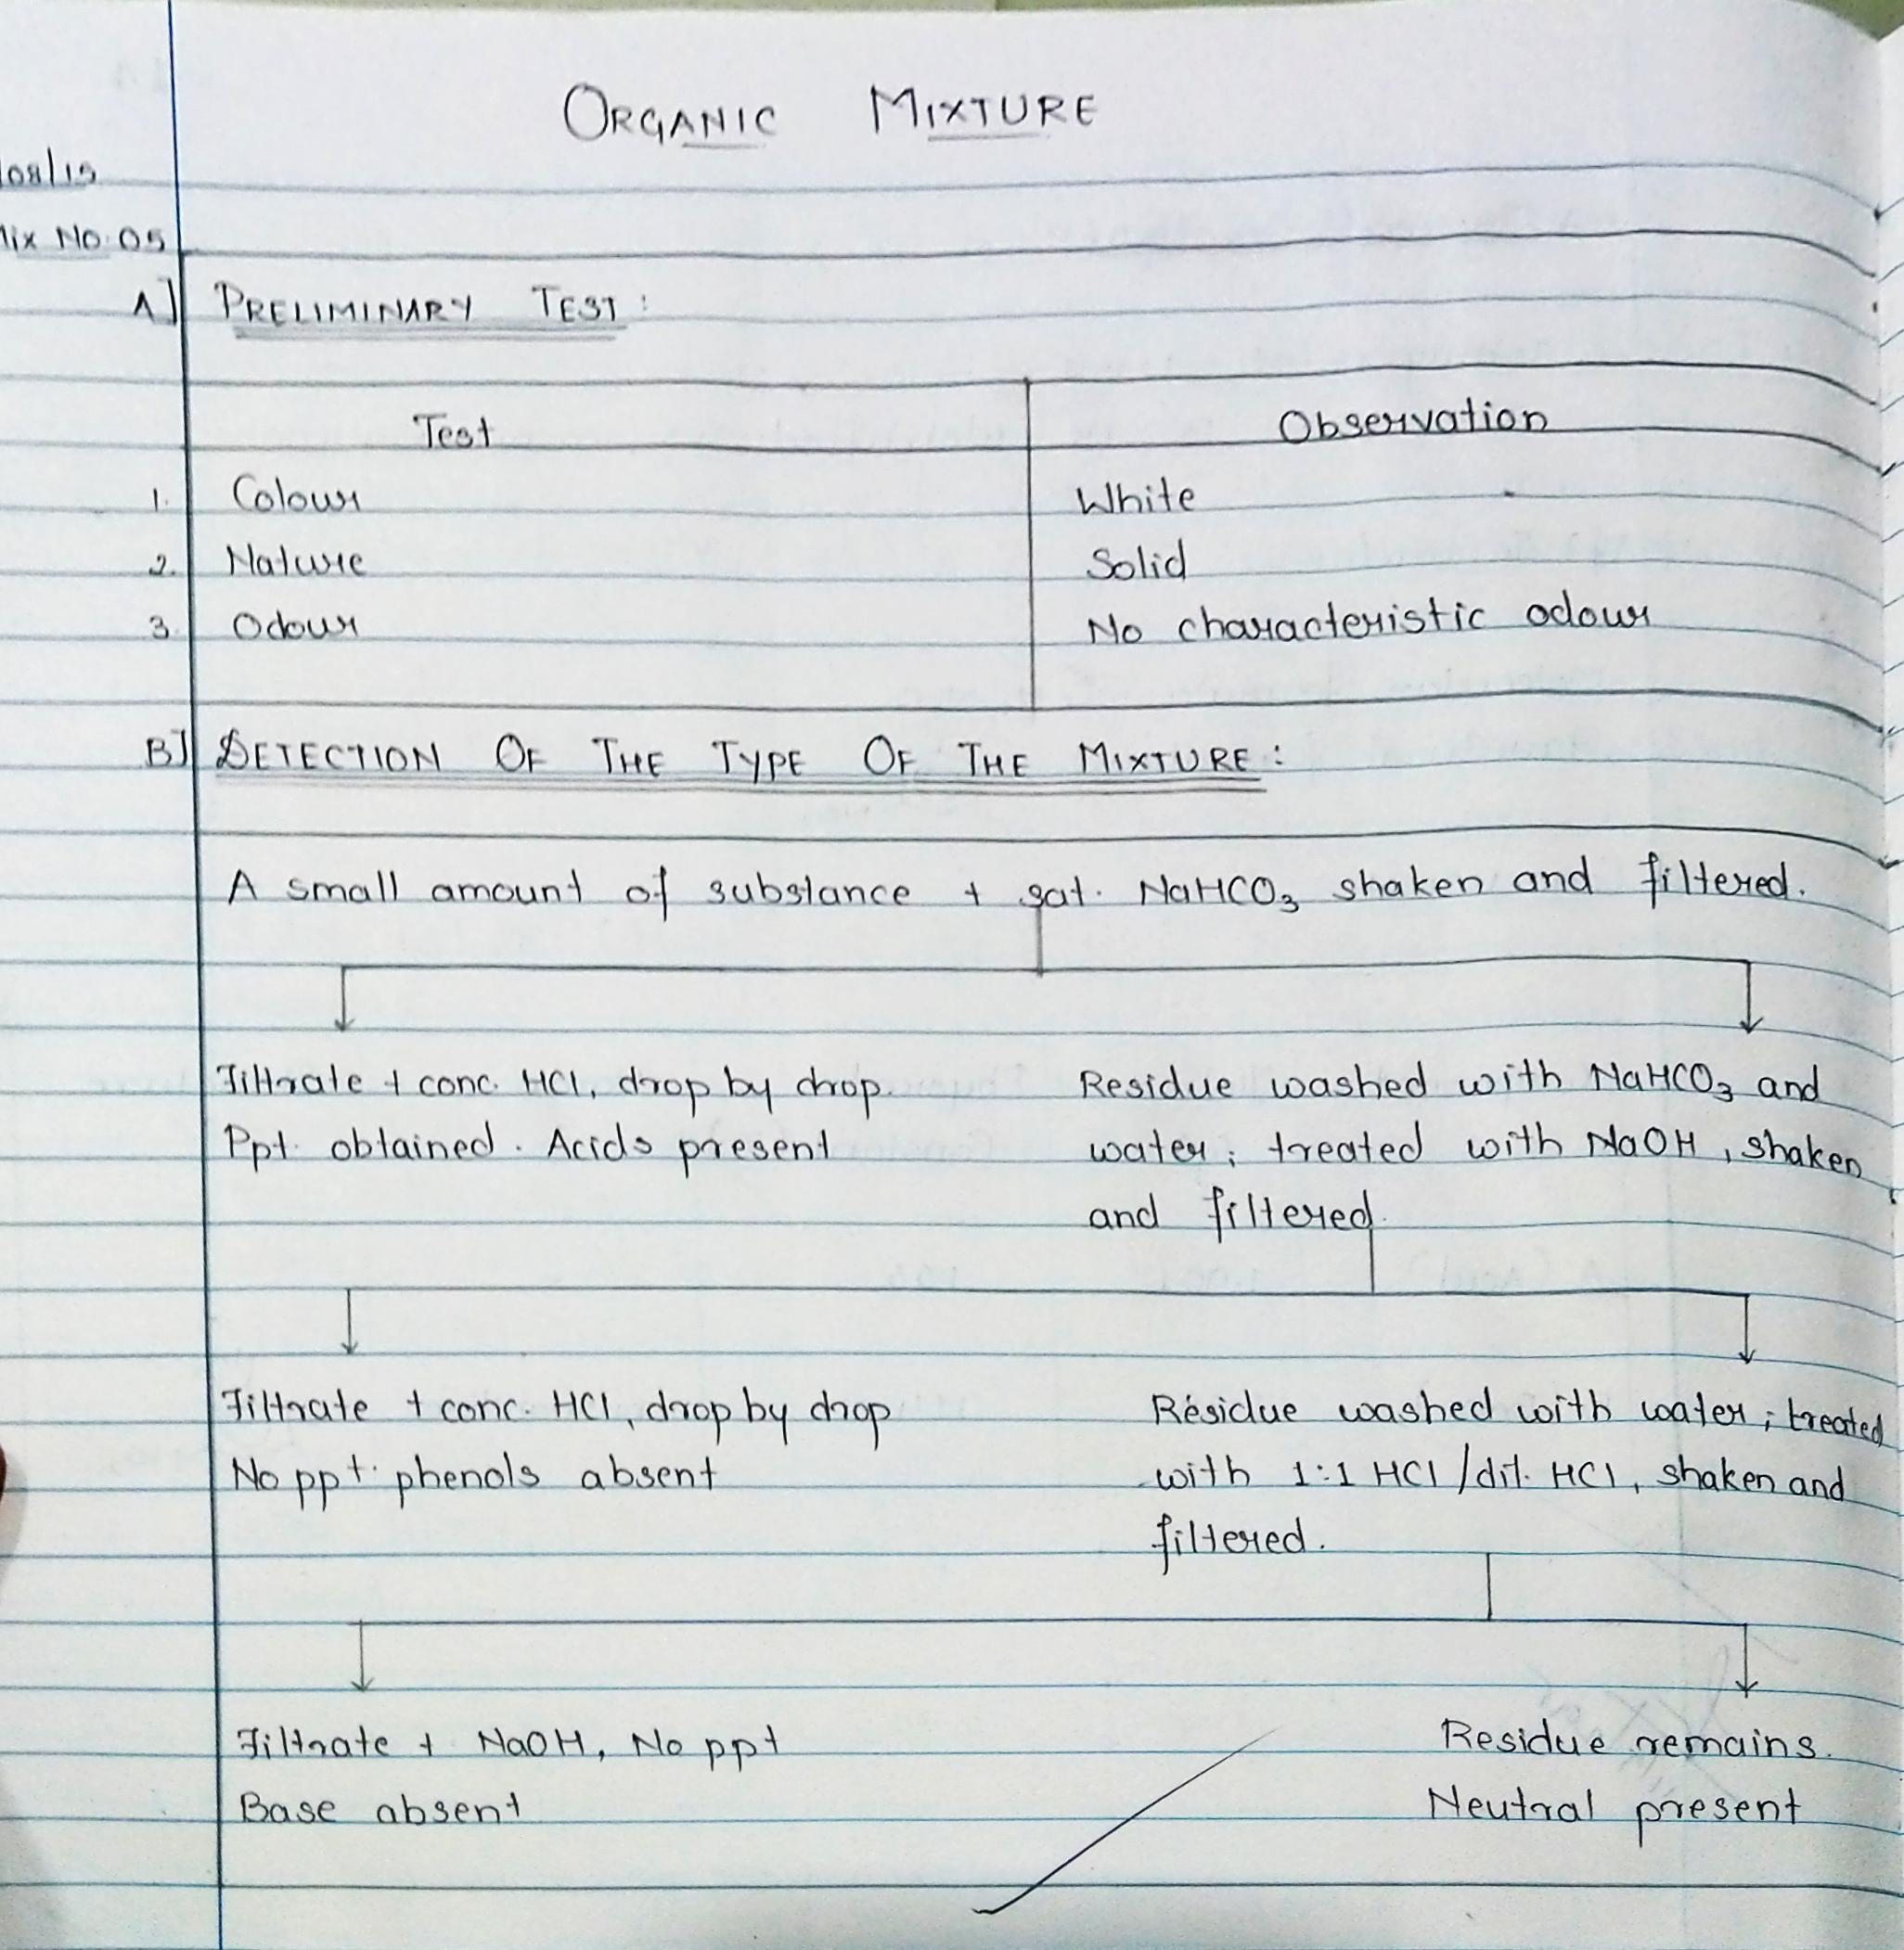 ORGANIC MIXTURE
08/15
Mix No. 05
A] PRELIMINARY TEST:
Test Observation
1. Colour White
2. Nature Solid
3. Odour No characteristic odour
B] DETECTION OF THE TYPE OF THE MIXTURE:
A small amount of substance + sat. NaHCO₃ shaken and filtered.
Filtrate + conc. HCl, drop by drop.
Ppt. obtained. Acids present
Residue washed with NaHCO₃ and
water; treated with NaOH, shaken
and filtered.
Filtrate + conc. HCl, drop by drop
No ppt. phenols absent
Residue washed with water; treated
with 1:1 HCl/dil. HCl, shaken and
filtered.
Filtrate + NaOH, No ppt
Base absent
Residue remains.
Neutral present